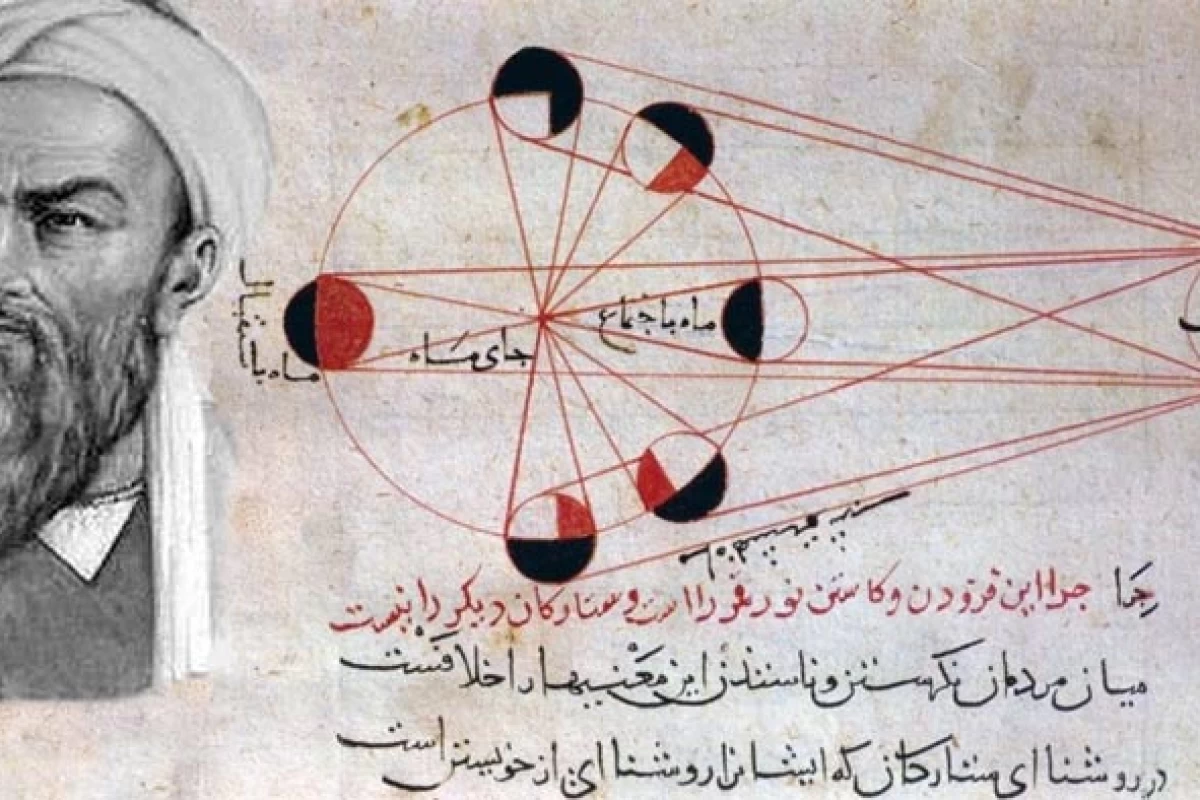 ماه باستقبال
جای ماه
ماه باجتماع
چرا چرا این فزودن و کاستن نور قمر را است و ستارکان دیکر را نیست
میان مردمان نکرستن و ناستدن این معنیها را خلافست
در روشنا ای ستارکان که ایشانرا روشنا ای از خویشتن است